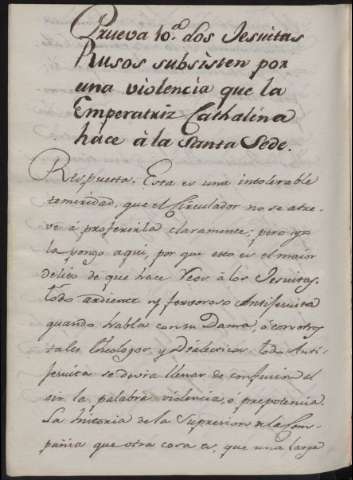 Prueva 10.a dos Jesuitas
Rusos subsisten por
una violencia que la
Emperatriz Cathalina
hace à la Santa Sede.
Respuesta. Esta es una intolerable
temeridad, que el Circulador no se atre-
ve à proferirla claramente; pero yo
la pongo aqui, por que este es el maior
delito de que hace Reos à los Jesuitas,
todo ardiente y fervoroso Antijesuita
quando habla con su Dama, ó con otros
tales Theologos, y Dialecticos. todo Anti-
jesuita se devia llenar de confusion al
oir la palabra violencia, ó prepotencia.
La historia de la Supresion de la Com-
pañia que otra cosa es, que una larga